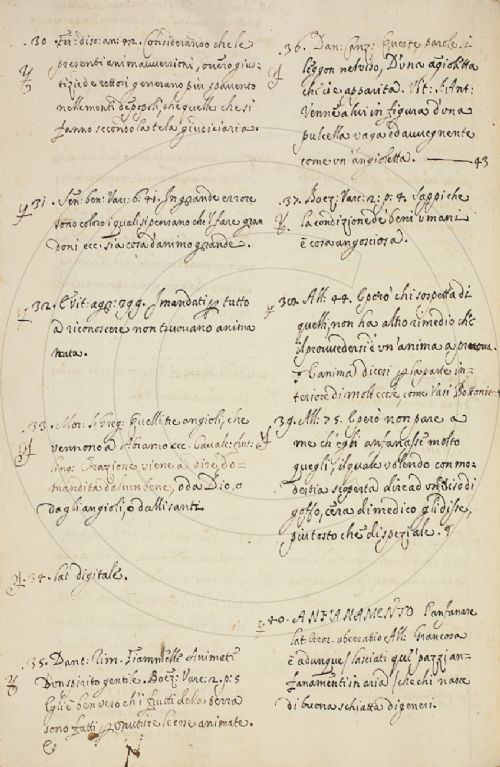 30. Fir: disc: an: 42. Considerando che le
presenti anima avversioni, ovvero gius-
tizie de rettori generano più spavento
nelle menti de popoli, che quelle che si
fanno secondo la tela giudiciaria.
31. Sen: ben: Varc: 6. 41. In grande errore
sono coloro i quali si pensano che 'l fare gran
doni ecc. sia cosa d'animo grande.
32. E vit: agg: 399. I mandati p tutto
a riconoscere non trovavano anima
nata.
33. Mor: S. Greg: Quelli tre angioli, che
vennono a Abraamo ecc. Cavalc:
Orazione viene a dire, do-
mandita da un bene, o da Dio, o
dagli angioli, o dalli santi
34. lat digitale.
35. Dant: Rim. Fiammelle animate
D'un spirito gentile. Boez: Varc: 2. p: 5
Egli è ben vero ch'i frutti della terra
sono fatti p nutrire le cose animate.
36. Dan: Canz: Queste parole si
leggon nel viso, D'una agioletta
che ci è apparita. Vit: S. Ant:
Venne a lui in figura d'una
pulcella vaga ed avvegnente
come un' angioletta. 43
37. Boez: Varc: 2: p: 4. Sappi che
la condizione de' beni umani
è cosa angosciosa.
38. All: 44. E però chi sospetta di
quelli, non ha altro rimedio che
il provvedersi è un' anima a prova.
E anima dicesi p la parte in-
teriore di molte cose, come Vasi Bottoni ecc
39. All: 75. E però non pare a
me ch' egli anfanasse molto
quegli, il quale volendo con mo-
destia scoperta dire ad un Viso di
goffo, cera di medico gli disse,
più tosto che di speziale.
40. ANFANAMENTO l'anfanare
lat error. aberratio All:
è adunque lasciati qui pazzi an-
fanamenti in aria che chi nasce
di buona schiatta di generi.